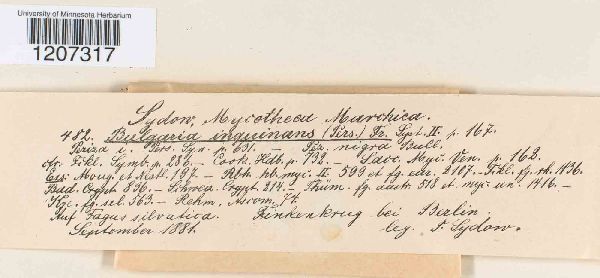 University of Minnesota Herbarium
1207317
Sydow, Mycotheca Marchica.
482. Bulgaria inquinans (Pers.) Fr. Syst. II. p. 167.
Peziza i. Pers. Syn. p. 631. — Pez. nigra Bull.
cfr. Fckl. Symb. p. 286. — Cook. Hdb. p. 732. — Sacc. Myc. Ven. p. 162.
Exs. Moug. et Nestl. 197. — Rbh. hb. myc. II. 599 et fg. eur. 2107. — Fckl. fg. rh. 1136.
Rad. Crypt. 896. — Schweiz. Crypt. 217. — Thüm. fg. austr. 518 et myc. un. 1916. —
Kze. fg. sel. 563. — Rehm, Ascom. 74.
Auf Fagus silvatica. Finkenkrug bei Berlin.
September 1881. leg. P. Sydow.